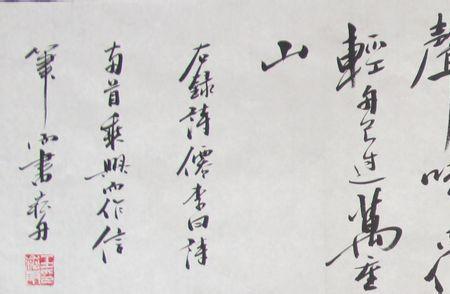 聲啼
輕舟已過萬重
山
右錄詩僊李白詩
両首乘興而作信
筆而書